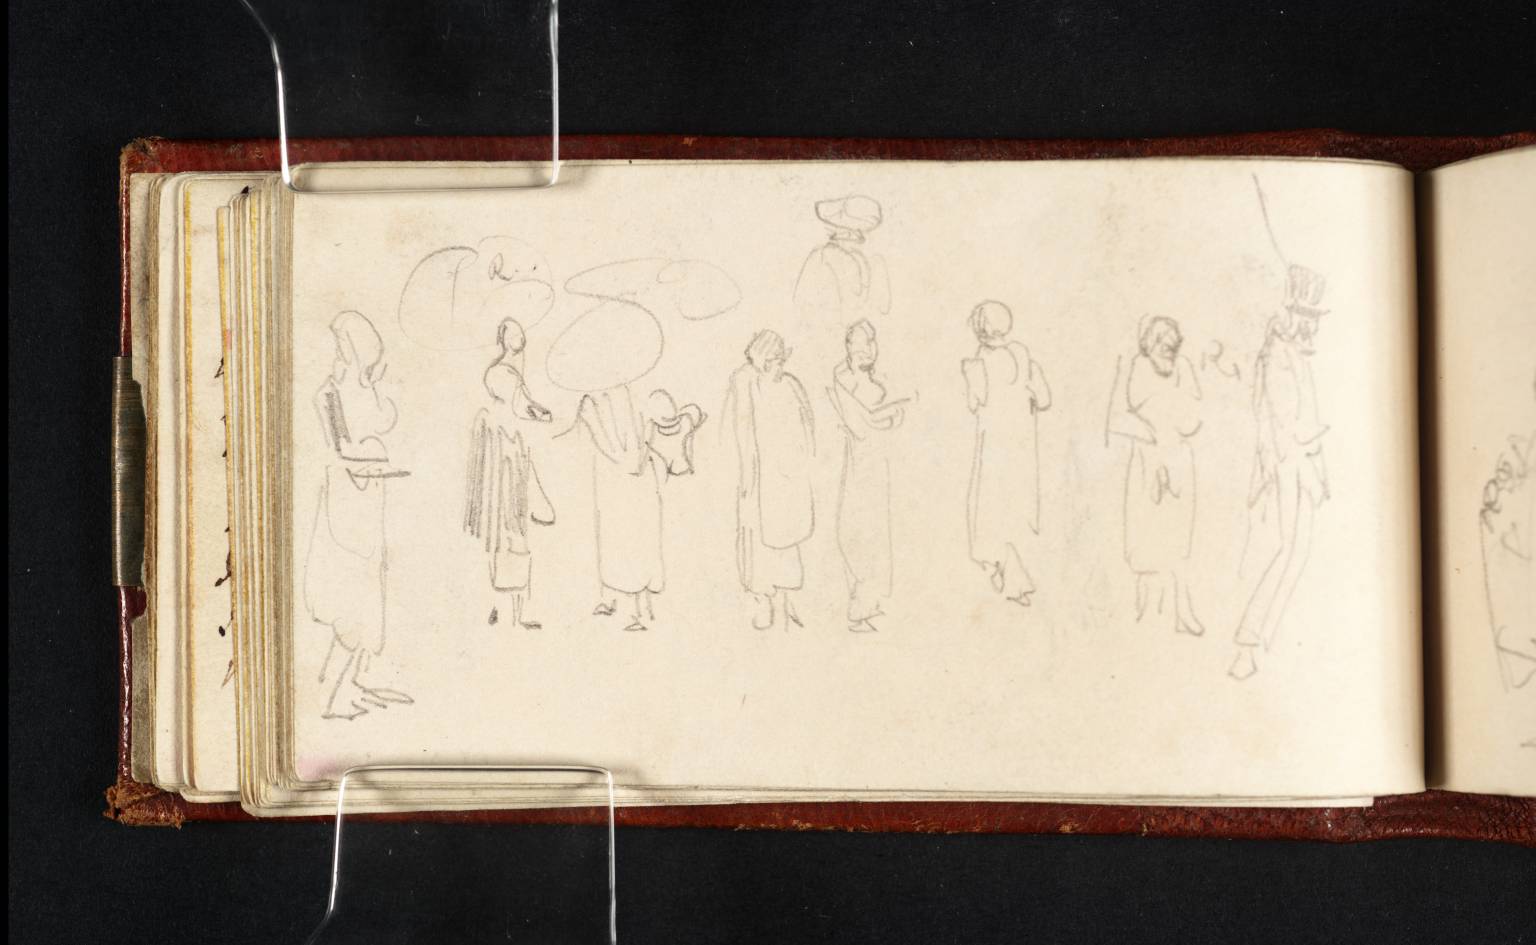 R
R
R